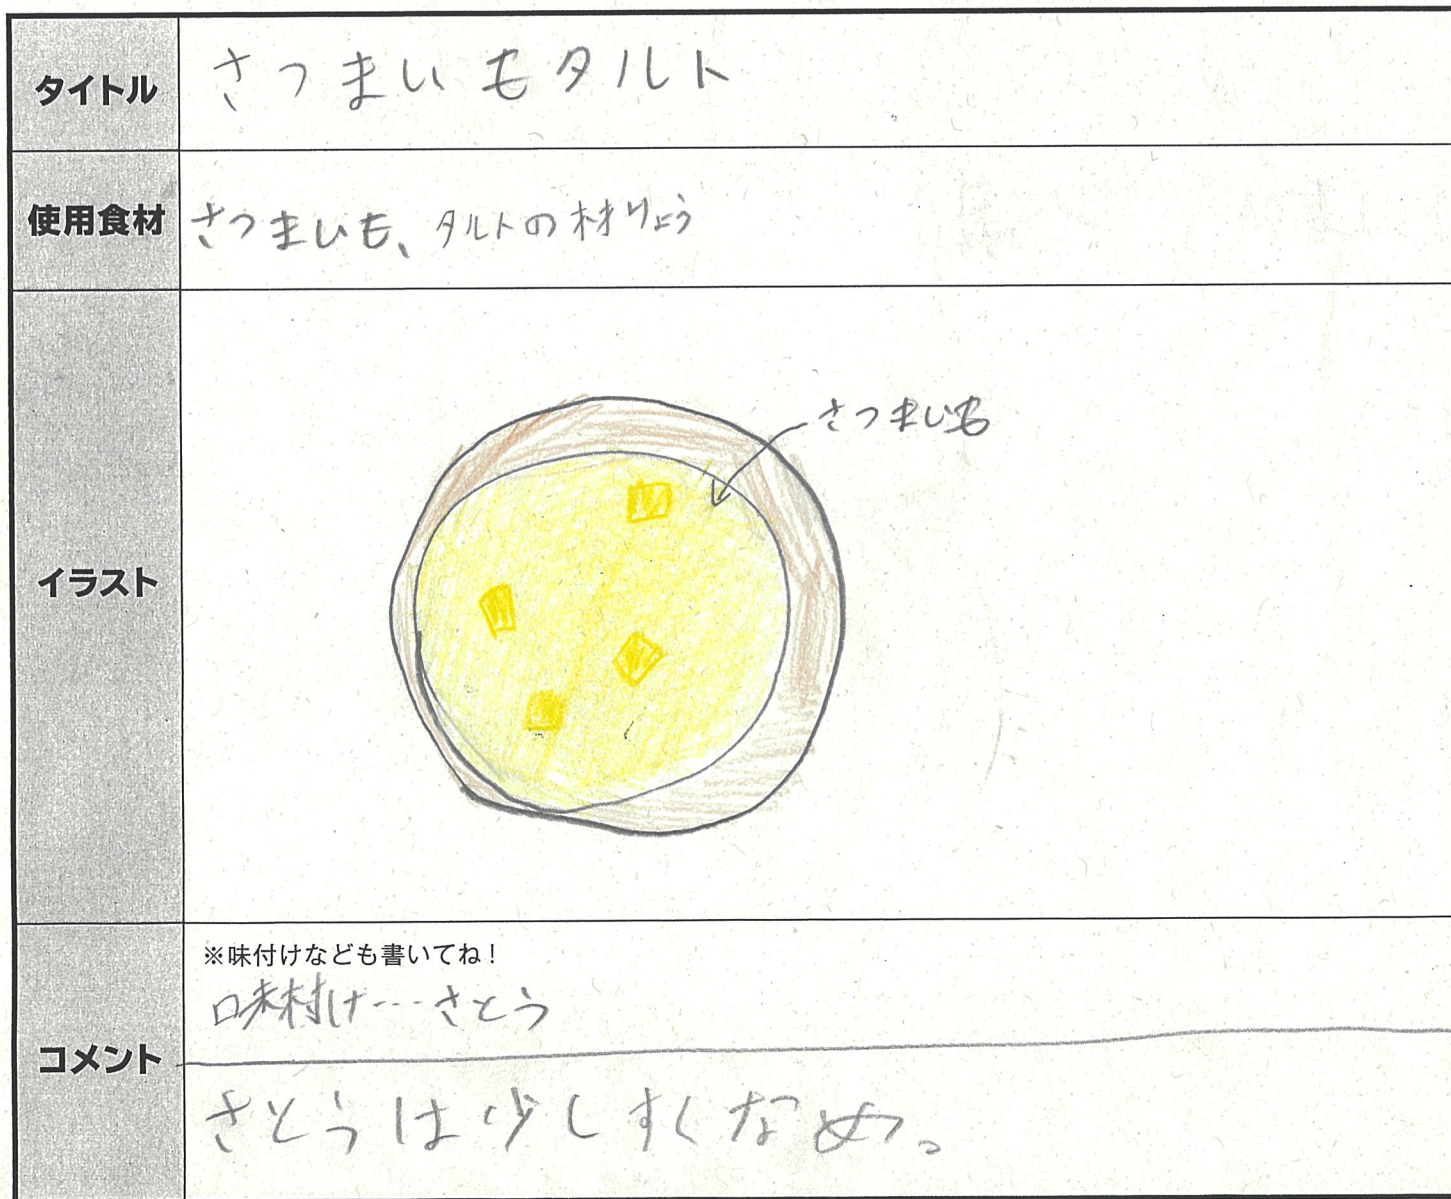 タイトル
さつまいもタルト
使用食材
さつまいも、タルトの材りょう
イラスト
さつまいも
コメント
※味付けなども書いてね！
味付け…さとう
さとうは少しすくなめ。